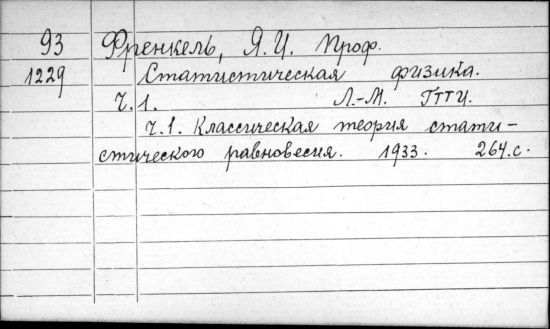 93 Френкель, Я.И. Проф.
1229 Статистическая физика.
Ч.1. Л.-М. ГТТИ.
ч.1. Классическая теория стати-
стического равновесия. 1933. 264.с.